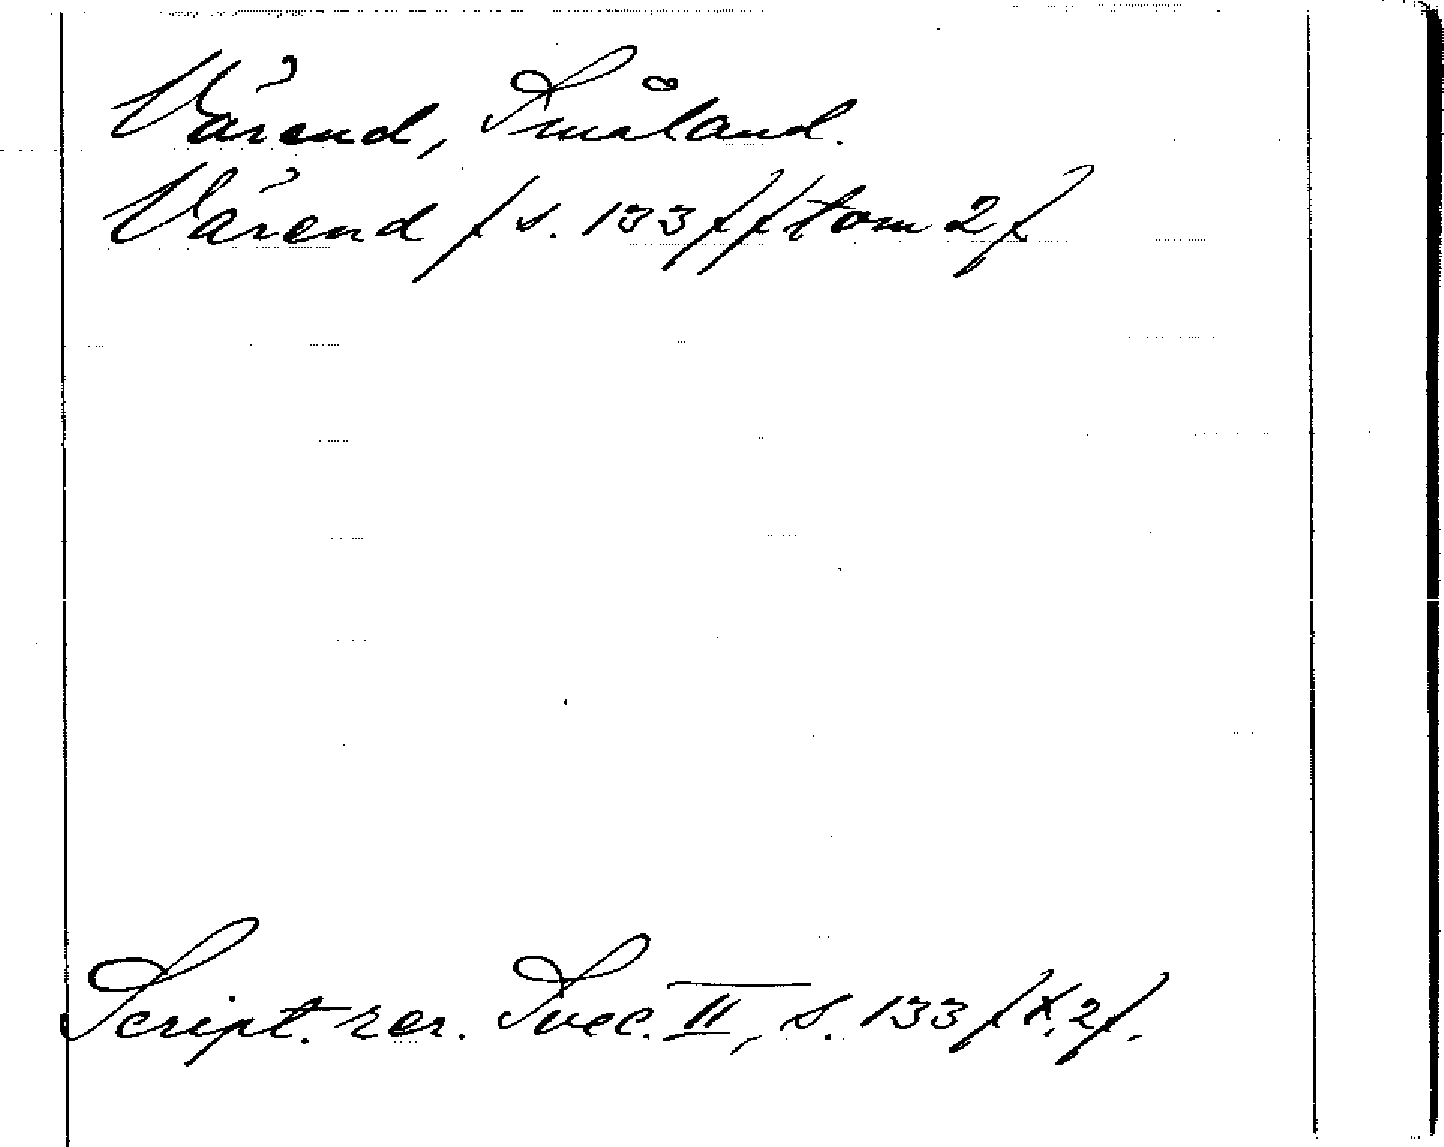 Värend, Småland.
Värend (s. 133 ff tom 2)
Script. rer. Svec. II, s. 133 (X, 2).